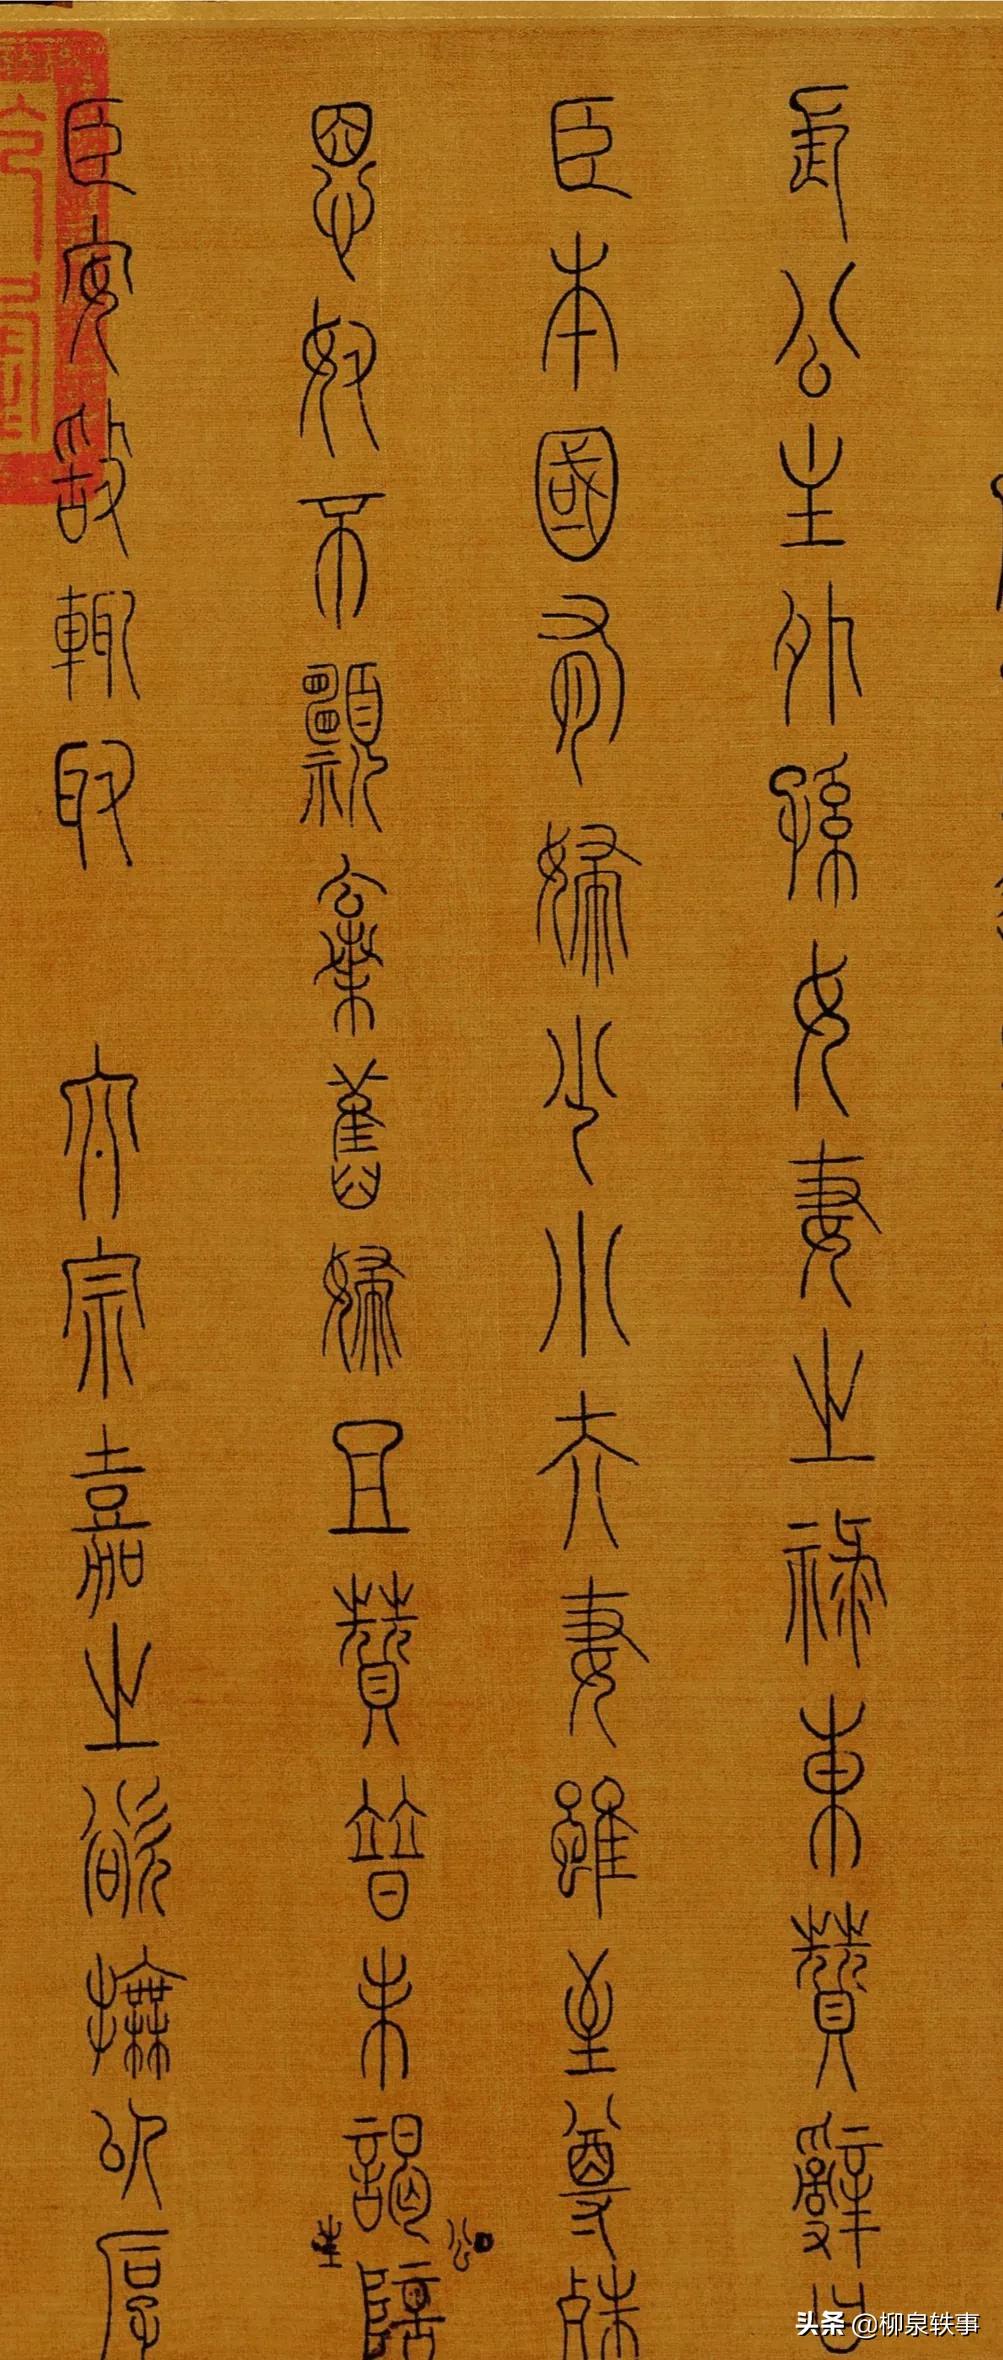 長公主外孫女妻之祿東贊辭曰
臣本國有婦少小夫妻雖至尊殊
恩奴不願棄舊婦且贊普未謁公主陪
臣安敢輒取 太宗嘉之欲撫以厚
头条 @柳泉轶事